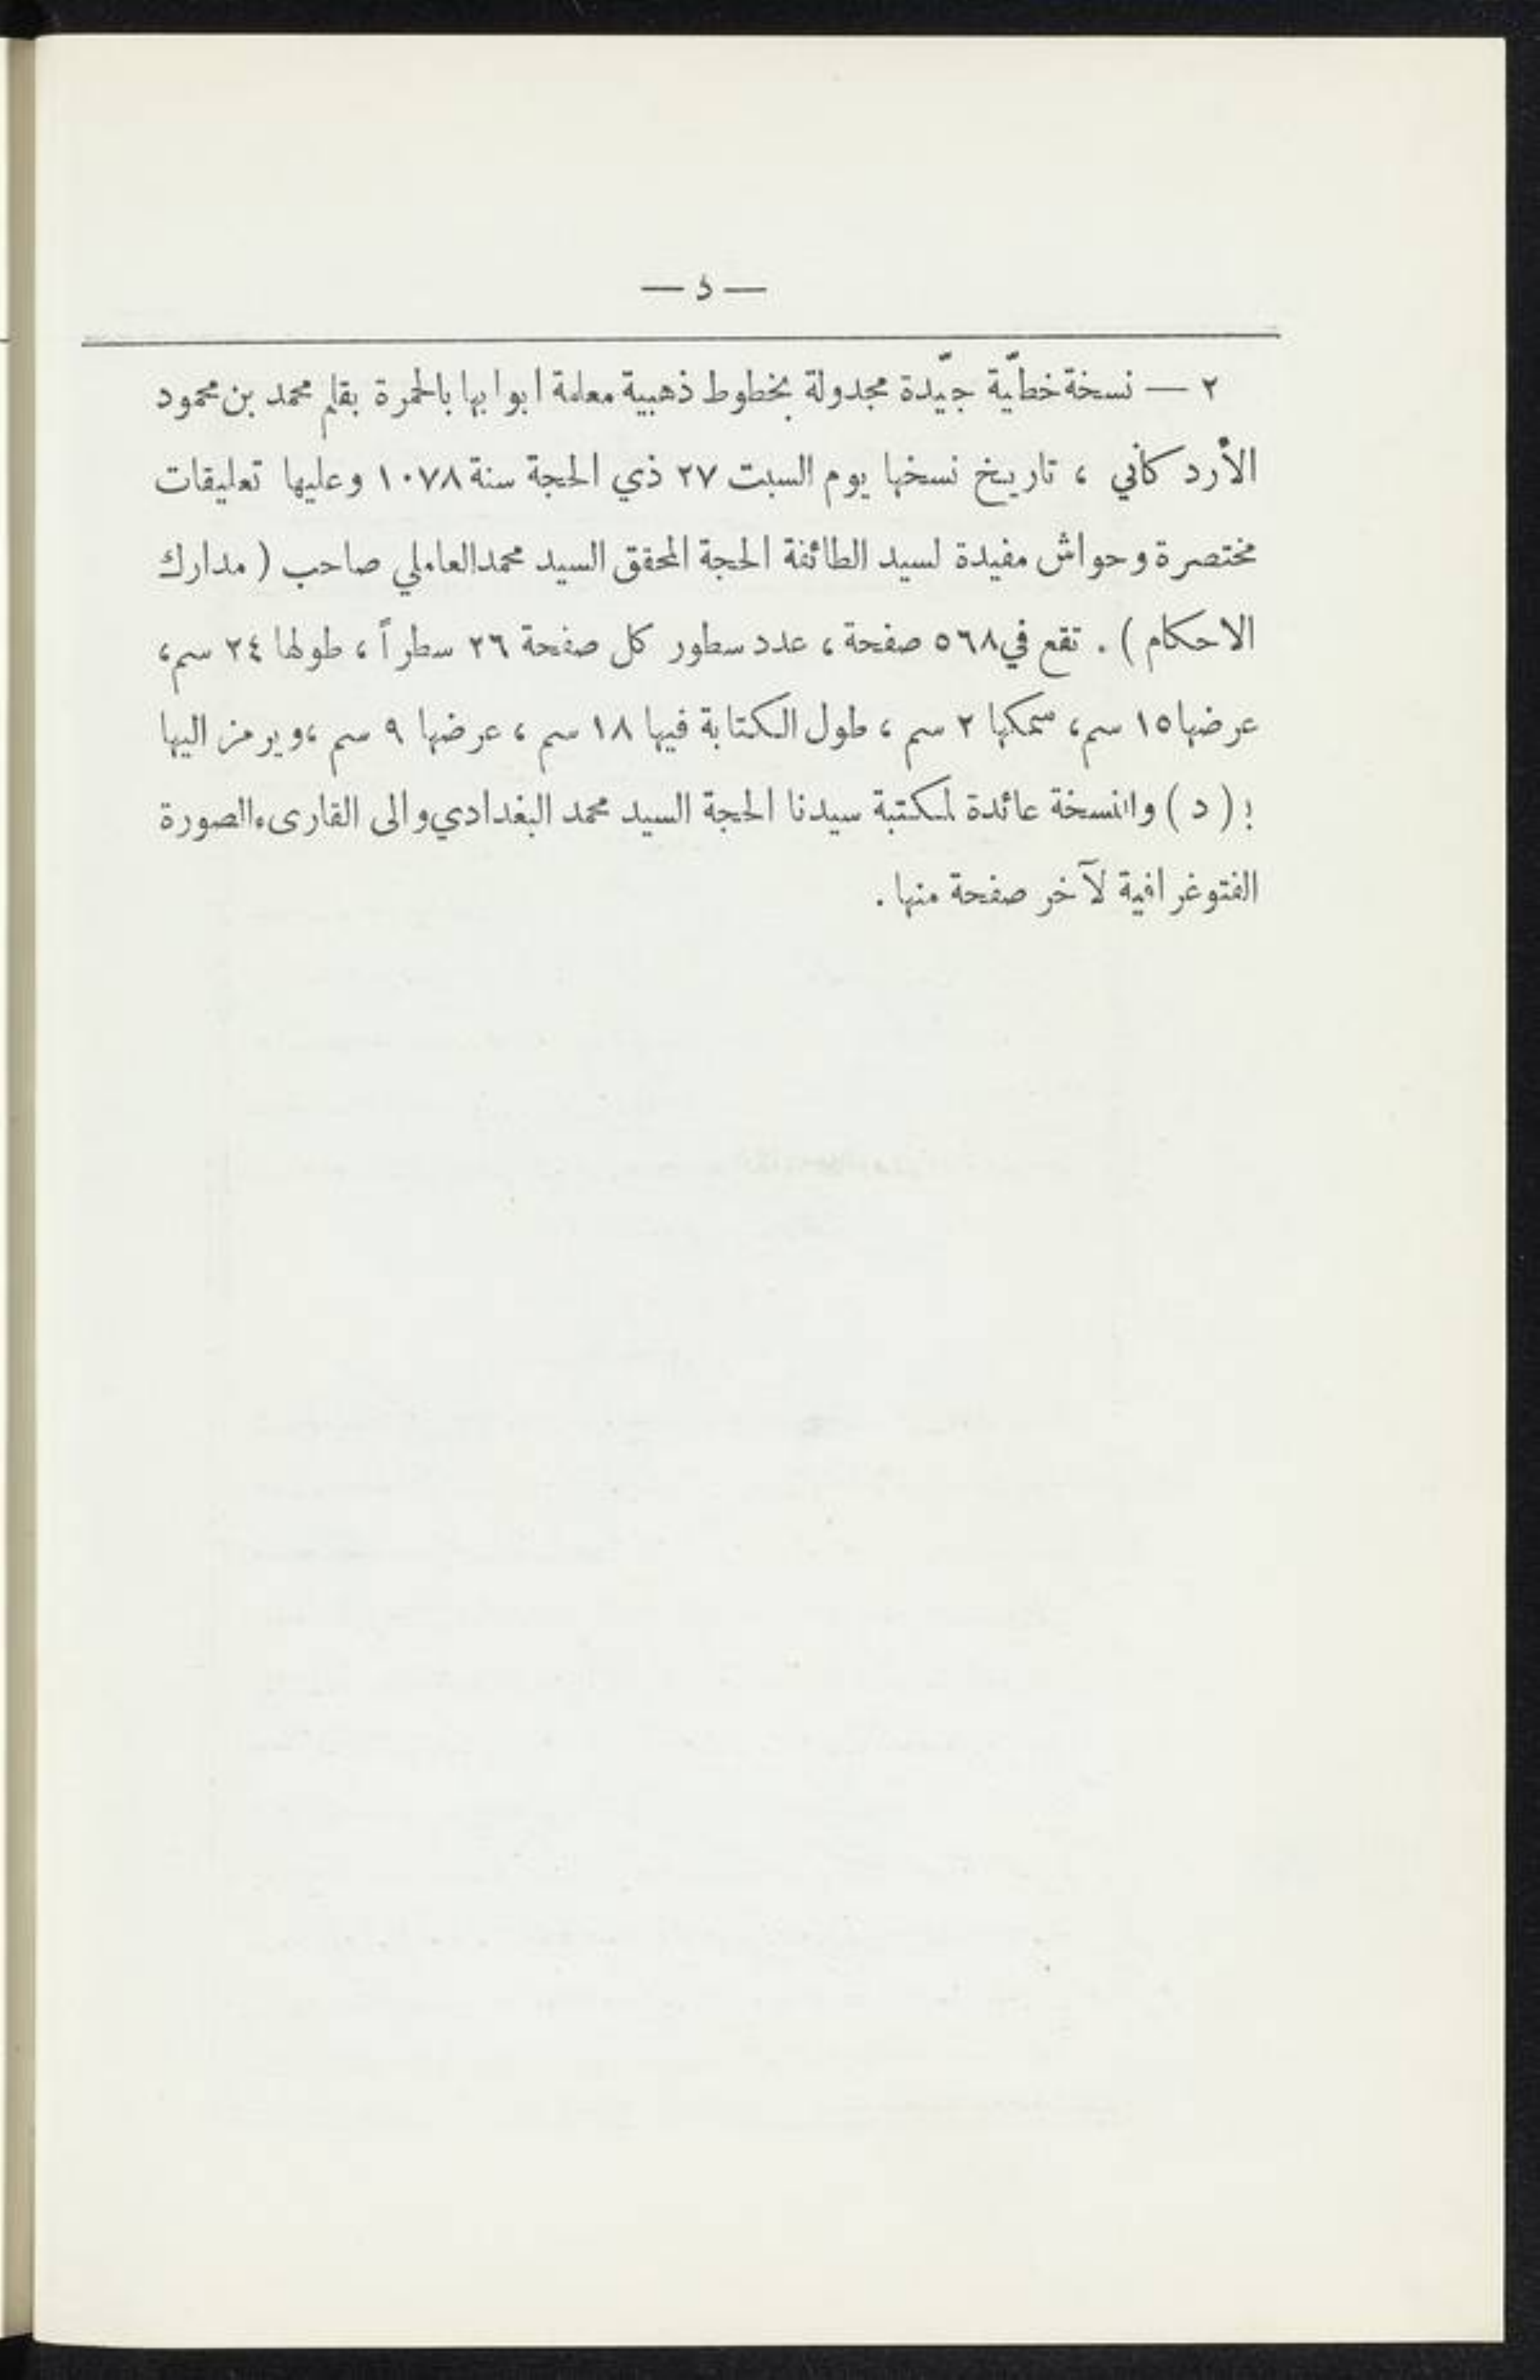 — د —
٢ — نسخة خطيّة جيّدة مجدولة بخطوط ذهبية معلمة ابوابها بالحمرة بقلم محمد بن محمود
الأردكاني ، تاريخ نسخها يوم السبت ٢٧ ذي الحجة سنة ١٠٧٨ وعليها تعليقات
مختصرة وحواش مفيدة لسيد الطائفة الحجة المحقق السيد محمد العاملي صاحب ( مدارك
الاحكام ) . تقع في ٥٦٨ صفحة ، عدد سطور كل صفحة ٢٦ سطراً ، طولها ٢٤ سم ،
عرضها ١٥ سم ، سمكها ٢ سم ، طول الكتابة فيها ١٨ سم ، عرضها ٩ سم ، ويرمز اليها
بـ ( د ) والنسخة عائدة لمكتبة سيدنا الحجة السيد محمد البغدادي والى القارىء الصورة
الفتوغرافية لآخر صفحة منها .